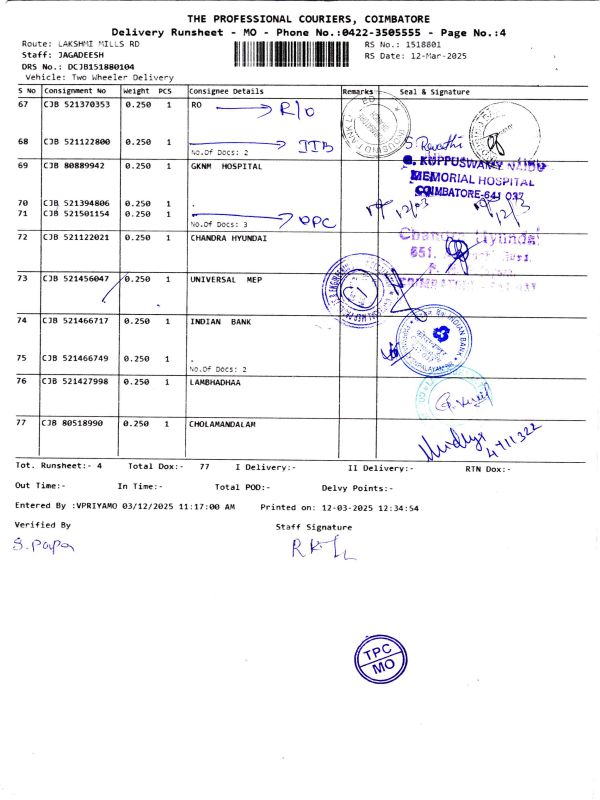 THE PROFESSIONAL COURIERS, COIMBATORE
Delivery Runsheet - MO - Phone No.:0422-3505555 - Page No.:4
Route: LAKSHMI MILLS RD RS No.: 1518801
Staff: JAGADEESH RS Date: 12-Mar-2025
DRS No.: DCJB151880104
Vehicle: Two Wheeler Delivery
S No Consignment No Weight PCS Consignee Details Remarks Seal & Signature
67 CJB 521370353 0.250 1 RO R/o
68 CJB 521122800 0.250 1 . IIB S. Revathi
No.Of Docs: 2
G. KUPPUSWAMY NAIDU
69 CJB 80889942 0.250 1 GKNM HOSPITAL
MEMORIAL HOSPITAL
COIMBATORE-641 037
70 CJB 521394806 0.250 1 .
12/03 12/3
71 CJB 521501154 0.250 1 . OPC
No.Of Docs: 3
72 CJB 521122021 0.250 1 CHANDRA HYUNDAI Chandra Hyundai
651,
73 CJB 521456047 0.250 1 UNIVERSAL MEP
74 CJB 521466717 0.250 1 INDIAN BANK
INDIAN BANK
75 CJB 521466749 0.250 1 .
No.Of Docs: 2
76 CJB 521427998 0.250 1 LAMBHADHAA
77 CJB 80518990 0.250 1 CHOLAMANDALAM
4711322
Tot. Runsheet:- 4 Total Dox:- 77 I Delivery:- II Delivery:- RTN Dox:-
Out Time:- In Time:- Total POD:- Delvy Points:-
Entered By :VPRIYAMO 03/12/2025 11:17:00 AM Printed on: 12-03-2025 12:34:54
Verified By Staff Signature
S. Papa
TPC
MO